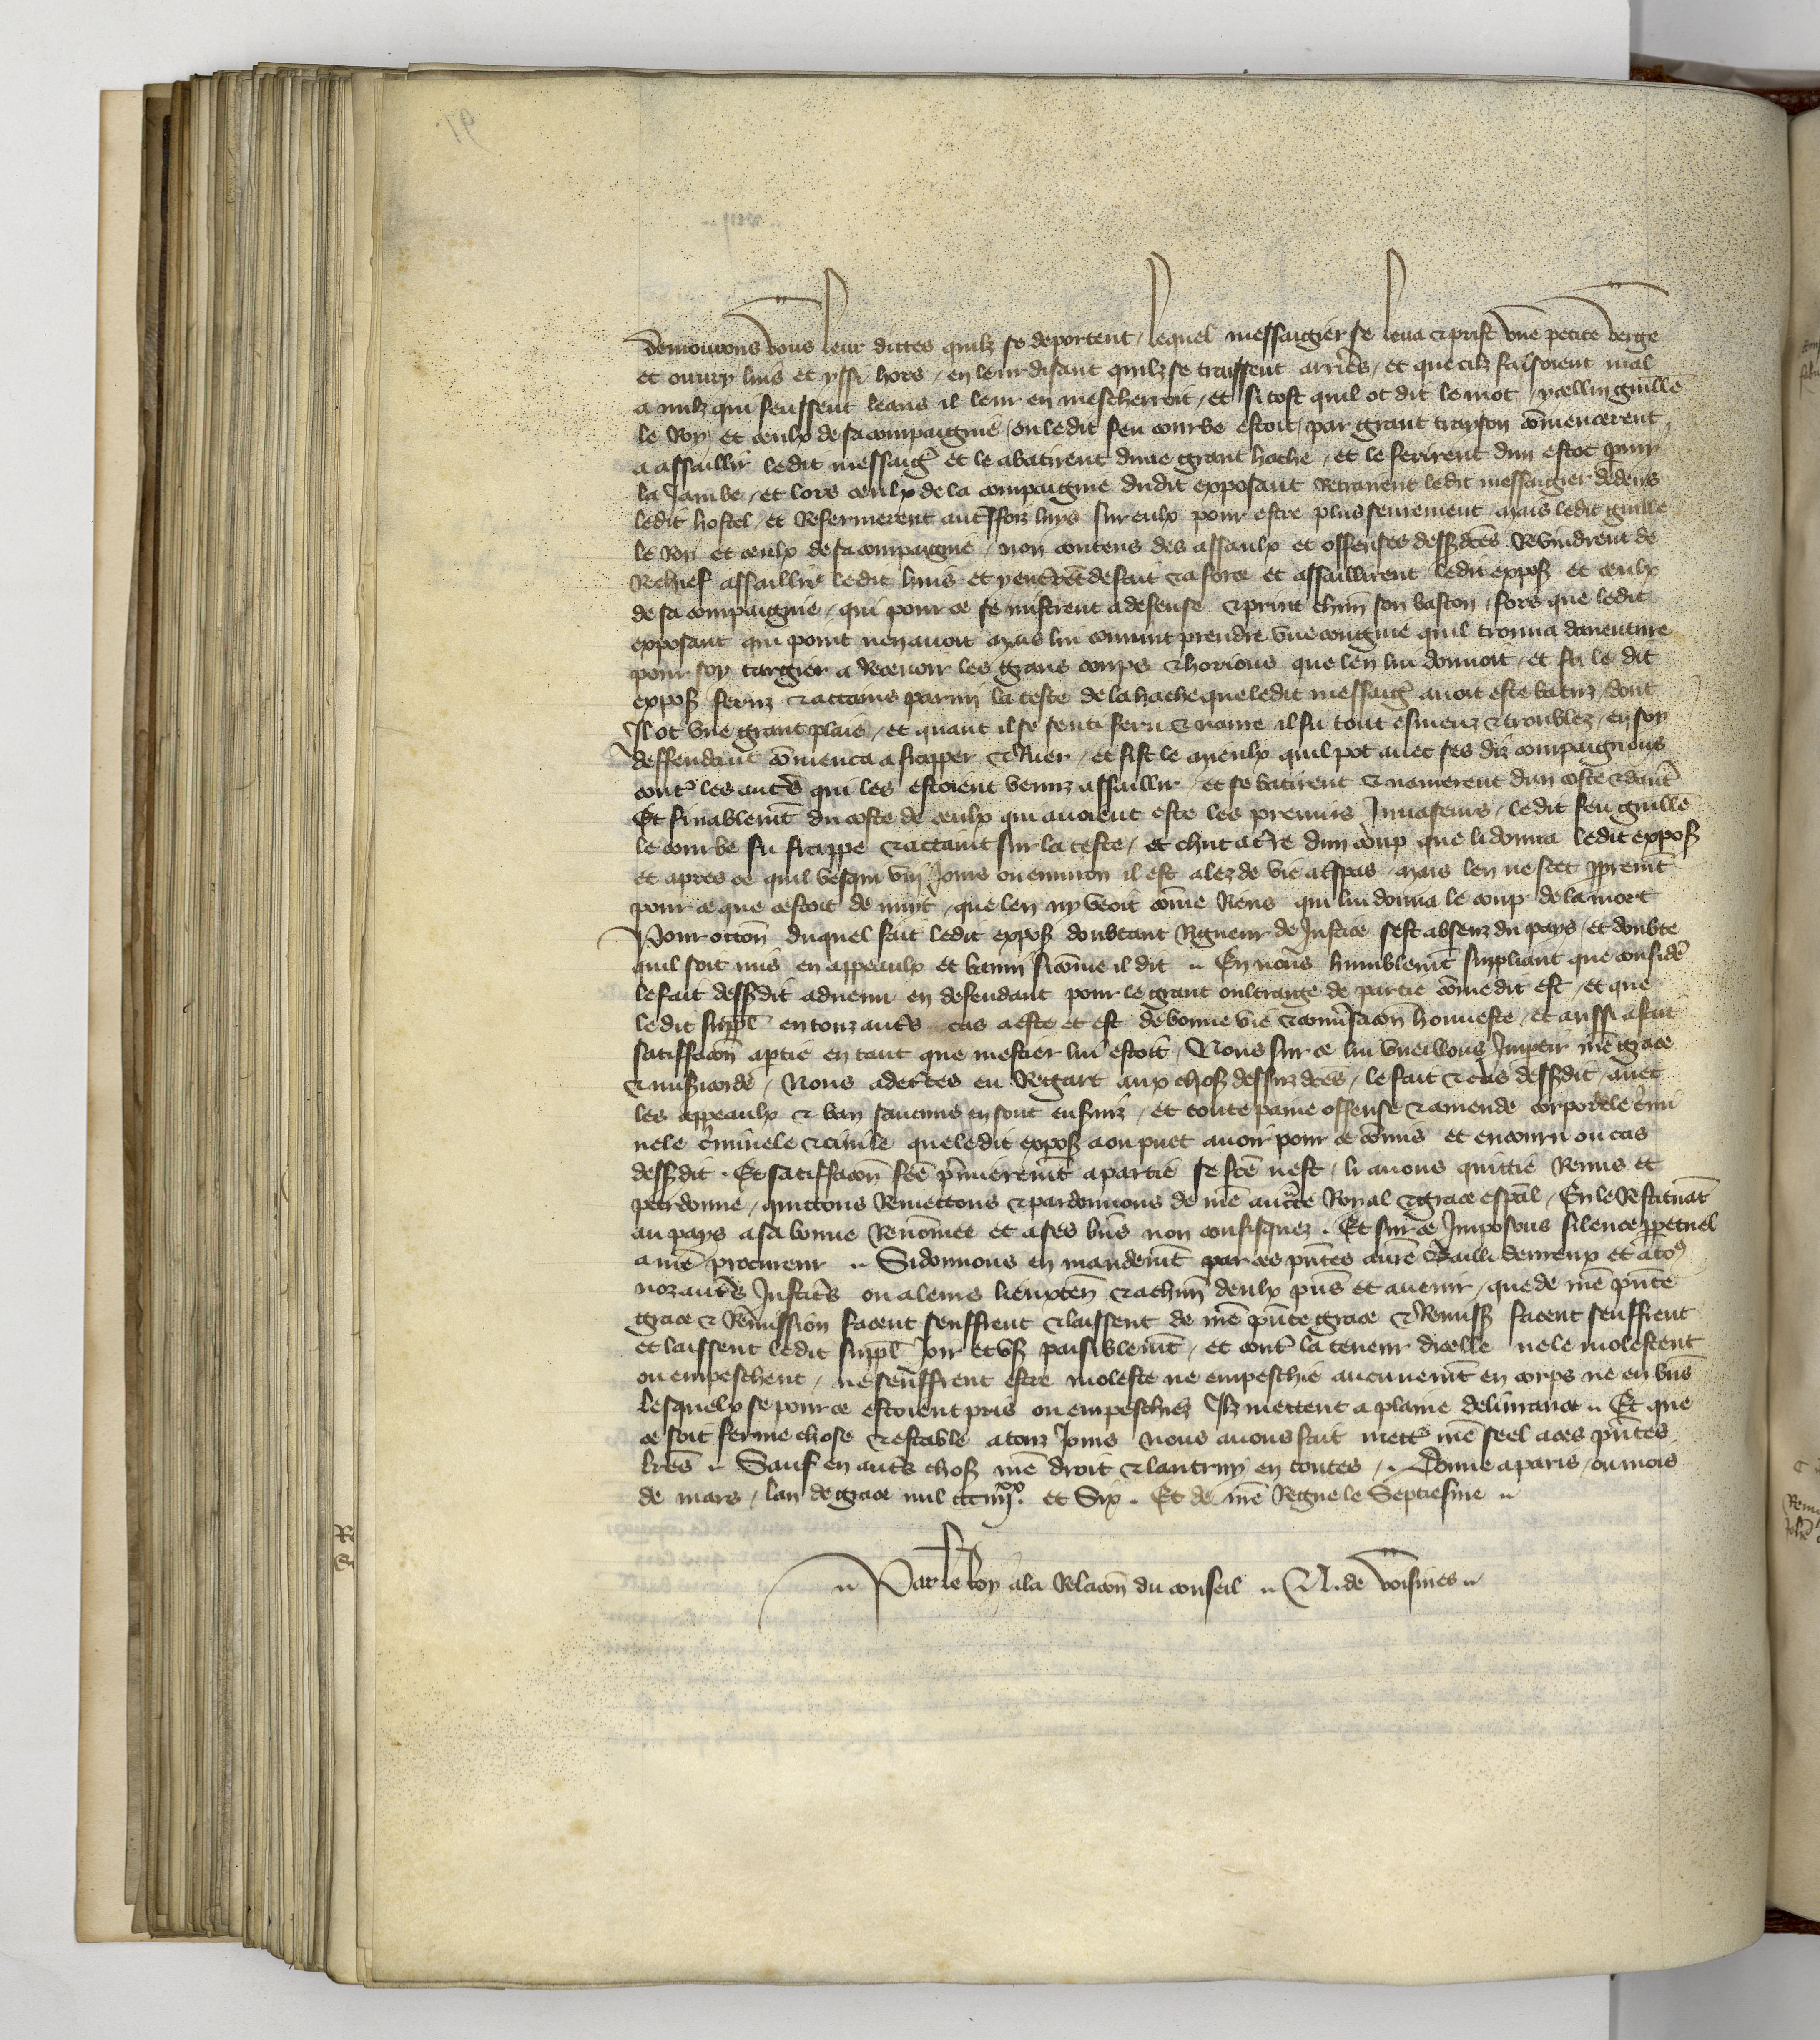 demourons vous leur dittes quilz se deportent / lequel messaigier se leva & prist une petite verge
et ouvry luis et yssi hors / en leur disant quilz se traissent arrieꝛs / et que cilz faisoient mal
a nulz qui feussent leans il leur en mescherroit / et si tost quil ot dit le mot / ycellui guille̅
le Roy et ceulx de sa compaignie / ou ledit feu courbe estoit / par grant trayson co̅mencerent
a assaillir ledit messaig̾ et le abatirent dune grant hache / et le ferirent dun estoc pmy
la Jambe / et lors ceulx de la compaignie dudit exposant retrairent ledit messaigier dedens
ledit hostel / et Refermerent aut̾ffoiz luys sur eulx pour estre plus seurement mais ledit guille̅
le Roy et ceulx de sa compaignie / non contens des assaulx et offenses dess̾dc̅es Revindrent de
Rechief assaillir ledit huis et y ent̾re̅t de fait & a force et assaillirent ledit expos̾ et ceulx
de sa compaignie / qui pour ce se mistrent a defense & print chu̅n son baston / fors que ledit
exposant qui point nen avoit mais lui convint prendre une congnie quil trouva daventure
pour soy targier a Recevoir les grans coups & horions que len lui donnoit / et fu le dit
expos̾ feruz & attains parmi la teste de la hache que ledit messaig̾ avoit este batuz / dont
Il ot une grant plaie / et quant il se senti feru & navre il fu tout esmeuz & troublez / en soy
deffendant co̅menca a frapper & Ruer / et fist le mieulx quil pot avec ses diz compaignons
cont̾ les aut̾s qui les estoient venuz assaillir / et se batirent & navrerent dun coste & daut̾
Et finablem̅t du coste de ceulx qui avoient este les premiers Invaseurs / ledit feu guille̅
le courbe fu frappe & attaint sur la teste / et chut a t̾re dun coup que li donna ledit expos̾
et apres ce quil vesqui viij Jours ou environ il est alez de vie a t̾spas / mais len ne scet ppreme̅t
pour ce que cestoit de nuyt / que len ny veoit co̅me Riens qui lui donna le coup de la mort
Pour occo̅n duquel fait ledit expos̾ doubtant Rigueur de Justice sest absenz du pays / et doubte
quil soit mis en appeaulx et banni si co̅me il dit .. En nous humblem̅t suppliant que considē
le fait dess̾dit advenu en defendant pour le grant oultrage de partie co̅me dit est / et que
ledit suppl̅ en touz aut̾s cas a este et est de bonne vie & conv̾saco̅n honneste / et aussi a fait
satiffaco̅n a ptie en tant que mestier lui estoit / Nous sur ce lui vueillons Impartir nr̅e grace
& mis̾icorde / Nous adecertes eu Regart aux chos̾ dessuzdc̅es / le fait & cas dess̾dit / avec
les appeaulx & ban saucuns en sont ensuiz / et toute paine offense & amende corporele c̾mi
nele c̾minele & civile que ledit expos̾ a ou puet avoir pour ce co̅mis et encouru ou cas
dess̾dit . Et satiffaco̅n fc̅e p̾mierem̅t a partie se fc̅e nest / li avons quittie Remis et
pardonne / quittons Remettons & pardonnons de nr̅e auct̾te Royal & grace espal̅ / En le Restituat̅
au pays a sa bonne Reno̅mee et a ses bn̅s non confisquez . Et sur ce Imposons silence ppetuel
a nr̅e procureur .. Si donnons en mandem̅t par ces pn̅tes au̅re Bailli devreux et a to⁹
noz aut̾s Justic̾s ou a leurs lieuxten̅ & a chu̅n deulx pn̅s et avenir / que de nr̅e pn̅te
grace & Re̅mission facent seuffrent & laissent de nr̅e pn̅te grace & Remiss̾ facent seuffrent
et laissent ledit suppl̅ Joir et us̾ paisiblem̅t / et cont̾ la teneur dicelle ne le molestent
ou empeschent / ne seuffrent estre moleste ne empeschie aucunem̅t en corps ne en bn̅s
lesquelx se pour ce estoient pris ou empeschiez Ilz mettent a plaine delivrance .. Et que
ce soit ferme chose & estable a touz Jours nous avons fait mett̾ nr̅e seel a ces pn̅tes
lr̅es .. Sauf en aut̾s chos̾ nr̅e droit & lautruy en toutes / .. Donne a paris / ou mois
de mars / lan de grace mil ccciiij^xx. et Six . Et de nr̅e Regne le Septiesme ..
.. Par le Roy a la Relaco̅n du conseil .. N. de voisines ..